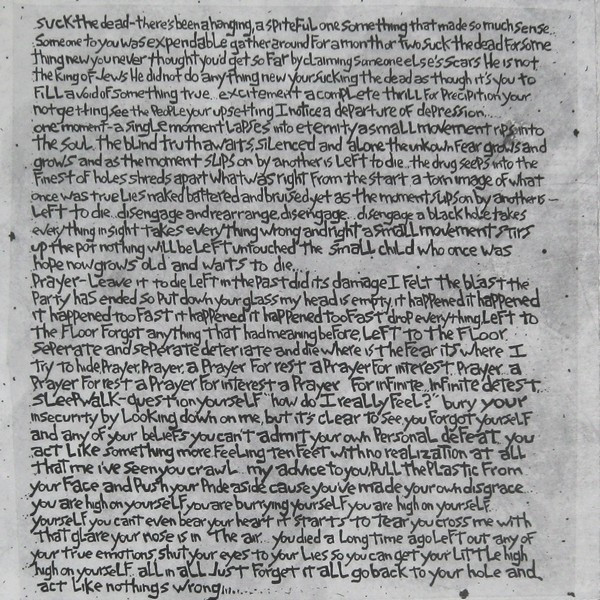 suck the dead-there's been a hanging, a spiteful one something that made so much sense..
Someone to you was expendable gather around for a month or two suck the dead for some
thing new you never thought you'd get so far by claiming someone else's scars He is not
the King of Jews He did not do anything new your sucking the dead as though it's you to
fill a void of something true... excitement a complete thrill for precipition your
not getting see the people your upsetting I notice a departure of depression....
one moment-a single moment lapses into eternity a small movement rips into
the soul the blind truth awaits, silenced and alone the unkown fear grows and
grows and as the moment slips on by another is left to die.. the drug seeps into the
finest of holes shreds apart what was right from the start a torn image of what
once was true lies naked battered and bruised yet as the moment slips on by another is-
left to die.. disengage and rearrange, disengage.. disengage a black hole takes
everything in sight takes everything wrong and right a small movement stirs
up the pot nothing will be left untouched the small child who once was
hope now grows old and waits to die...
Prayer-leave it to die left in the past did its damage I felt the blast the
party has ended so put down your glass my head is empty it happened it happened
it happened too fast it happened it happened too fast drop everything, left to
the floor forgot anything that had meaning before, left to the floor.
seperate and seperate deteriate and die where is the fear its where I
try to hide, prayer, prayer, a prayer for rest a prayer for interest, prayer.. a
prayer for rest a prayer for interest a prayer for infinite.. infinite detest...
sleepwalk-question yourself "how do I really feel?" bury your
insecurity by looking down on me, but it's clear to see, you forgot yourself
and any of your beliefs you can't admit your own personal defeat you
act like something more feeling ten feet with no realization at all
that me i've seen you crawl... my advice to you, pull the plastic from
your face and push your pride aside cause you've made your own disgrace...
you are high on yourself you are burrying yourself you are high on yourself
yourself you cant even bear your heart it starts to tear you cross me with
that glare your nose is in the air... you died a long time ago left out any of
your true emotions shut your eyes to your lies so you can get your little high
high on yourself.. all in all just forget it all go back to your hole and
act like nothings wrong......